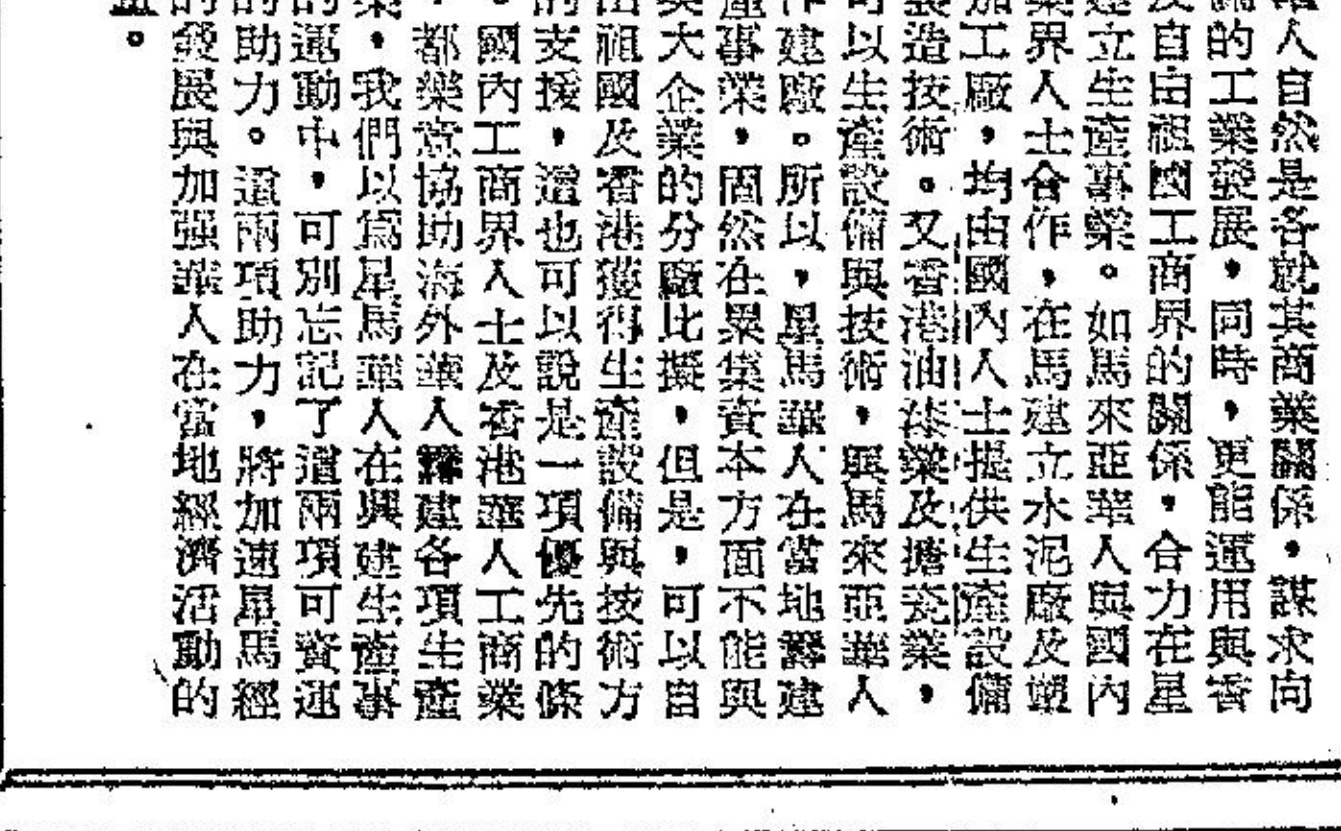 人自然是各就其商業關係，謀求向
的工業發展，同時，更能運用與香
及自由祖國工商界的關係，合力在星
建立生產事業。如馬來亞華人與國內
業界人士合作，在馬建立水泥廠及塑
加工廠，均由國內人士提供生產設備
製造技術。又香港油漆業及搪瓷業，
可以生產設備與技術，與馬來亞華人
作建廠。所以，星馬華人在當地籌建
產事業，固然在累集資本方面不能與
與大企業的分廠比擬，但是，可以自
由祖國及香港獲得生產設備與技術方
的支援，這也可以說是一項優先的條
。國內工商界人士及香港華人工商業
，都樂意協助海外華人籌建各項生產
業，我們以為星馬華人在興建生產事
的運動中，可別忘記了這兩項可資
的助力。這兩項助力，將加速星馬經
的發展與加强華人在當地經濟活動的
。